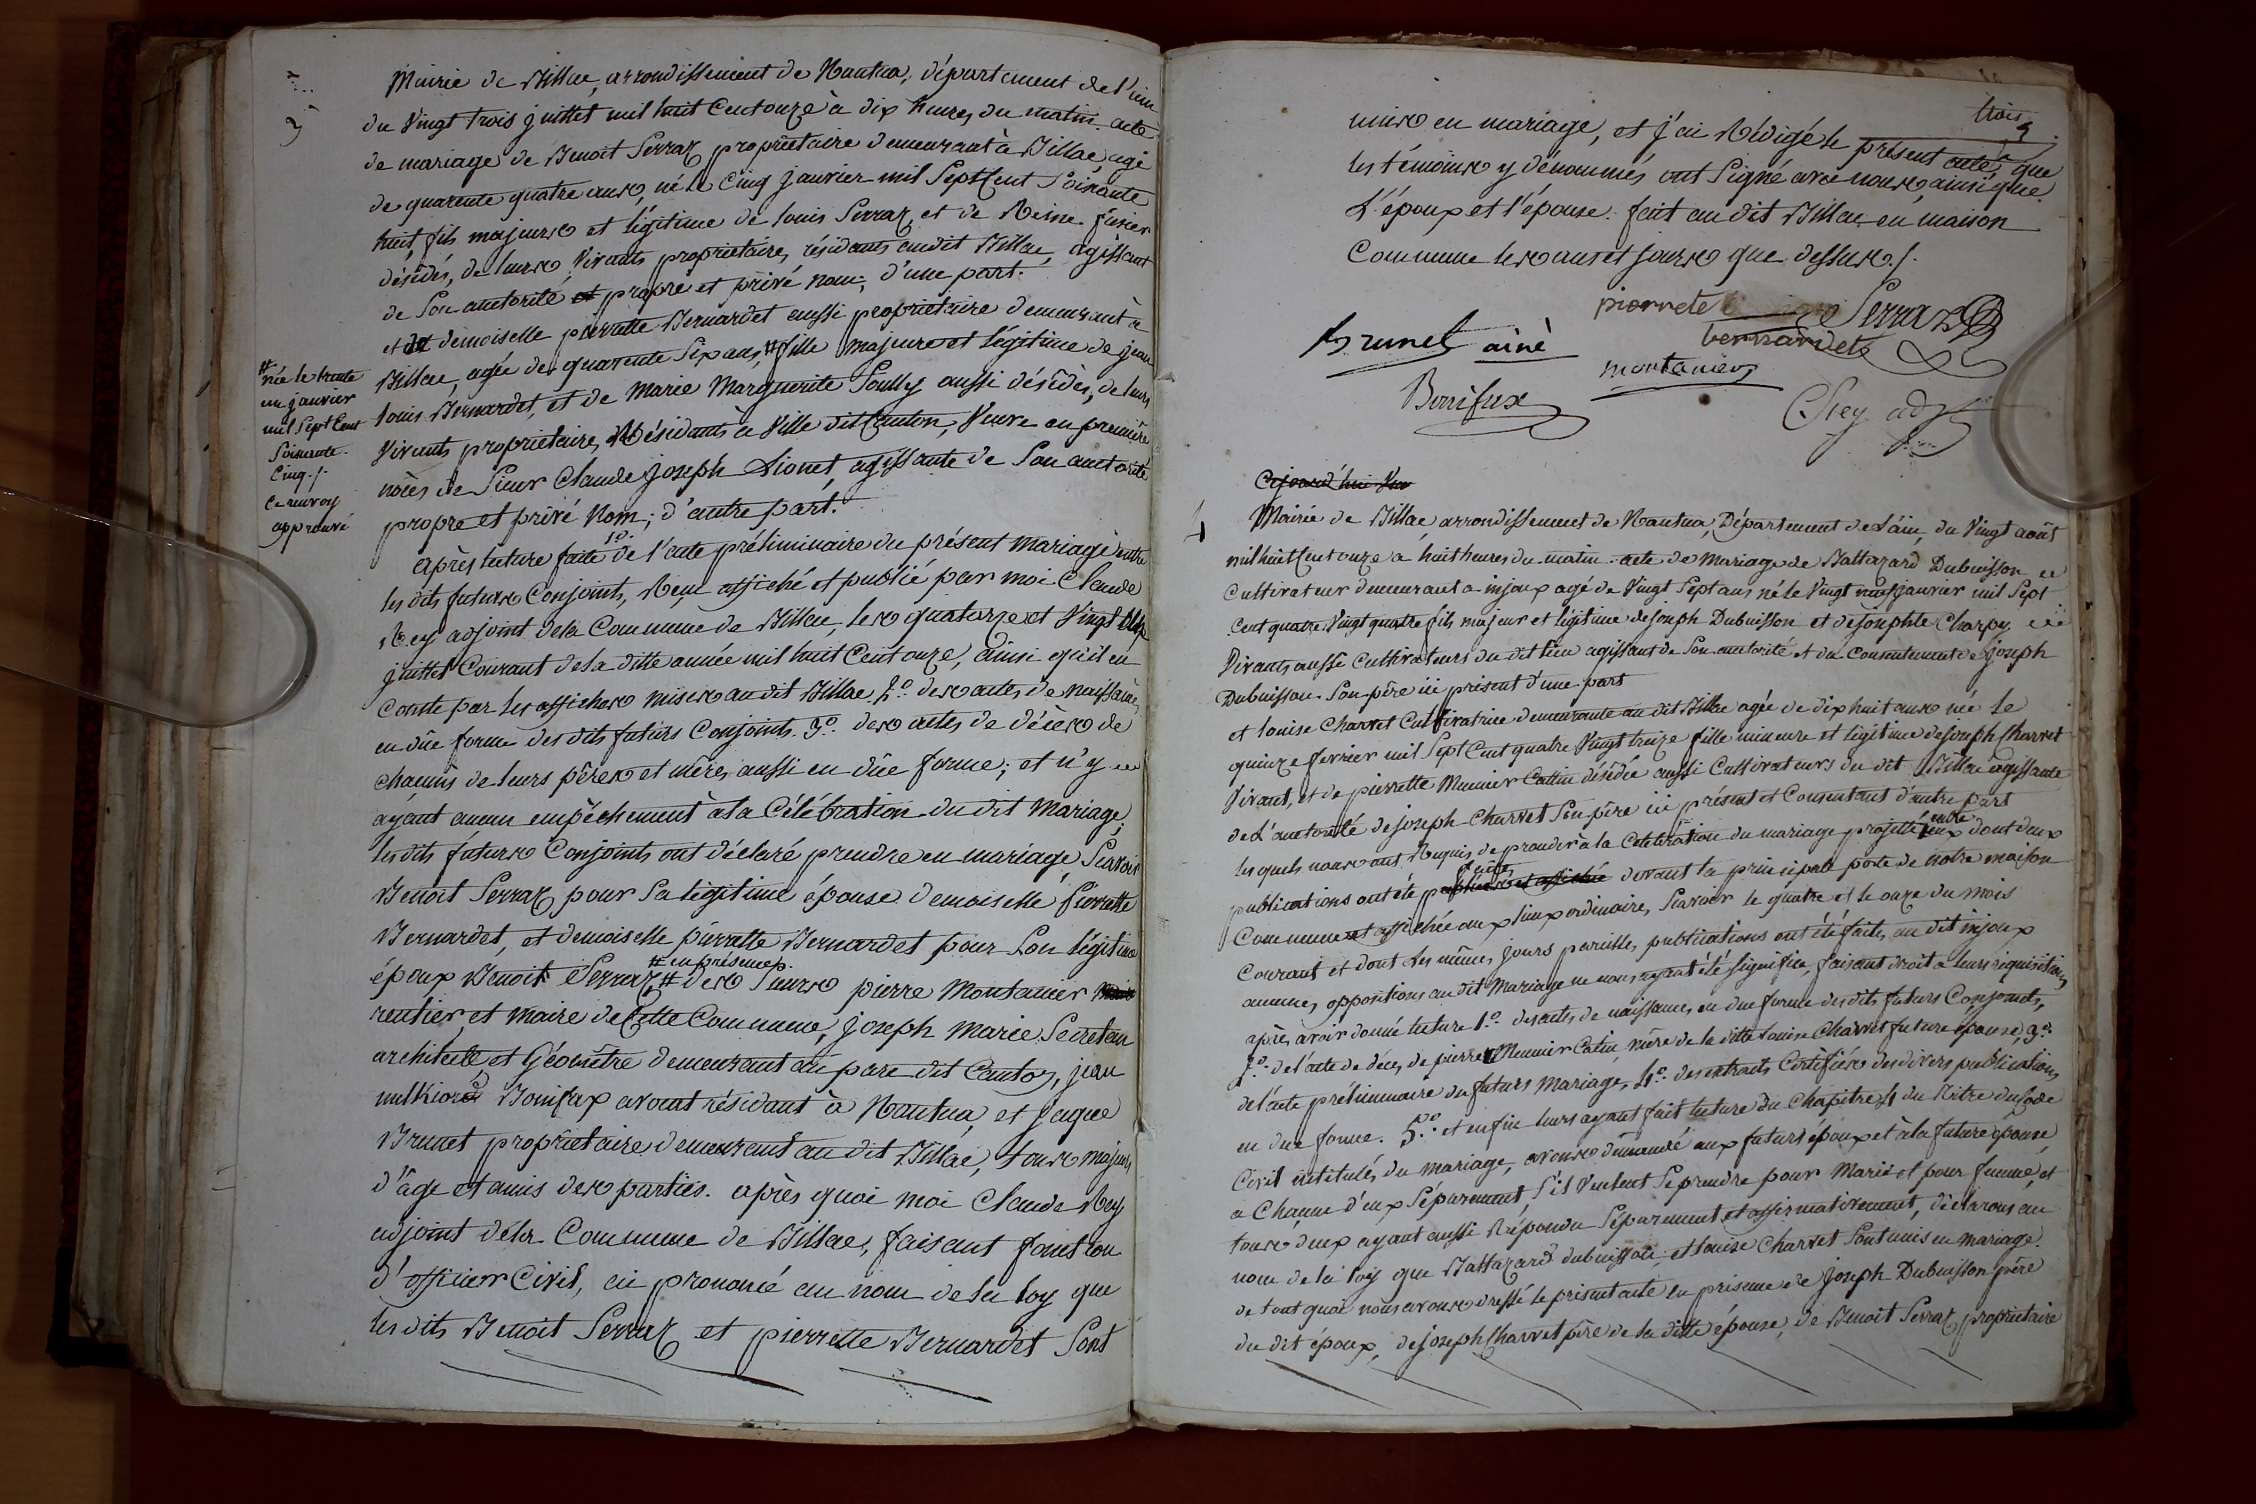 3
Mairie de Billiae, arrondissement de Nantua, département de l'ain
du Vingt trois juillet mil huit Cent onze à dix heures du matin. acte
de mariage de Benoit Serraz propriétaire demeurant à Billiae, agé
de quarente quatre ans, né le Cinq janvier mil Sept Cent Soixante
huit, fils majeurs et légitime de louis Serraz, et de Reine
désédés, de leurs Vivants propriétaires, résidants audit Billiae, agissant
de Son auctorité et propre et privé nom; d'une part.
et demoiselle pierrette Bernardet aussi propriétaire demeurant à
Billiae, agée de quarente Six ans, # fille majeure et légitime de jean
louis Bernardet, et de Marie Marguerite Soully aussi désédés, de leurs
Vivants propriétaires, Résidants à Ville dit Canton, Veuve en première
nôces de Sieur Claude joseph Lionet, agissante de Son auctorité
propre et privé Nom; d'autre part.
# née le trente
un janvier
mil Sept Cent
Soixante
Cinq./.
Ce renvoy
approuvé
après lecture faite 1o. de l'acte préliminaire du présent mariage entre
les dits futurs Conjoints, Reçu affiché et publié par moi Claude
Rey adjoint de la Commune de Billiae, les quatorze et Vingt
juillet Courant de la ditte année mil huit Cent onze, ainsi qu'il en
Conste par les affiches mises au dit Billiae 2o. des actes de naissance,
en dûe forme des dits futurs Conjoints. 3o. des actes de décès de
chacuns de leurs pères et mères, aussi en dûe forme; et n'y
ayant aucun empêchement à la Célébration du dit Mariage;
les dits futurs Conjoints ont déclaré prendre en mariage, Scavoir
Benoit Serraz pour Sa légitime épouse demoiselle Pierrette
Bernardet, et demoiselle pierrette Bernardet pour Son légitime
époux Benoit Serraz, # en présence des Sieurs pierre Montanier
rentier, et maire de Cette Commune, joseph Marie Secretan
architecte, et Géomêtre demeurant au parc dit Canton, jean
melkiord Bonifax avocat résidant à Nantua, et jaque
Brunet propriétaire demeurant au dit Billiae, tous majeurs
d'âge et amis des parties. après quoi moi Claude Rey
adjoint de la Commune de Billiae, faisant fonction
d'officier Civil, ai prononcé au nom de la loy que
les dits Benoit Serraz et pierrette Bernardet Sont
trois
3
unis en mariage, et j'ai Rédigé le présent acte, que
les témoins y dénommés ont Signé avec nous, ainsi que
L'époux et l'épouse. fait au dit Billiae en maison
Commune les ans et jours que dessus./.
pierrete Serraz
bernardete
Brunet ainè
montanier
Bonifax
Rey adj
4
Mairie de Billiae, arrondissement de Nantua, Département de L'ain, du Vingt août
mil huit Cent onze a huit heures du matin. acte de Mariage de Baltazard Dubuisson
Cultivateur demeurant a injoux agé de Vingt Sept ans né le Vingt neuf janvier mil Sept
Cent quatre Vingt quatre fils majeur et légitime de joseph Dubuisson et de josephte Charpy
Vivants aussi Cultivateurs du dit lieu agissant de Son auctorité et du Consentement de joseph
Dubuisson Son père ici présent d'une part
et louise Charvet Cultivatrice demeurante au dit Billiae agée de dix huit ans née le
quinze fevrier mil Sept Cent quatre Vingt treize fille mineure et légitime de joseph Charvet
Vivant, et de pierrette Meunier Cattin désédée aussi Cultivateurs du dit Billiae agissante
de L'auctorité de joseph Charvet Son père ici présent et Consentant d'autre part
lesquels nous ont Requis de procéder à la Célébration du mariage projetté entre eux dont deux
publications ont été faites devant la principale porte de notre maison
Commune et affichée aux lieux ordinaire, Scavoir le quatre et le onze du mois
Courant et dont les mêmes jours pareilles, publications ont été faites au dit injoux
aucunes oppositions au dit Mariage ne nous ayant été Signifiée, faisant droit a leurs réquisitions
après avoir donné lecture 1o. des actes de naissances, en due forme des dits futurs Conjoints,
2o. de l'acte de décès de pierrette Meunier Catin, mère de la ditte louise Charvet future épouse, 3o.
de l'acte préliminaire du futurs Mariage, 4o. des extraits Certifiés des divers publications
en due forme. 5o. et enfin leurs ayant fait lecture du Chapitre 4 du titre du Code
Civil intitulé du mariage, avons demandé aux futurs époux et à la future épouse,
a Chacun d'eux Séparement, S'il Veulent Se prendre pour Mari et pour femme, et
tous deux ayant aussi Répondu Séparement et affirmativement, déclarons au
nom de la loy que Baltazard dubuisson, et louise Charvet Sont unis en mariage.
de tout quoi nous avons dressé le présent acte en présence de joseph Dubuisson père
du dit époux, de joseph Charvet père de la ditte épouse, de Benoit Serraz propriétaire